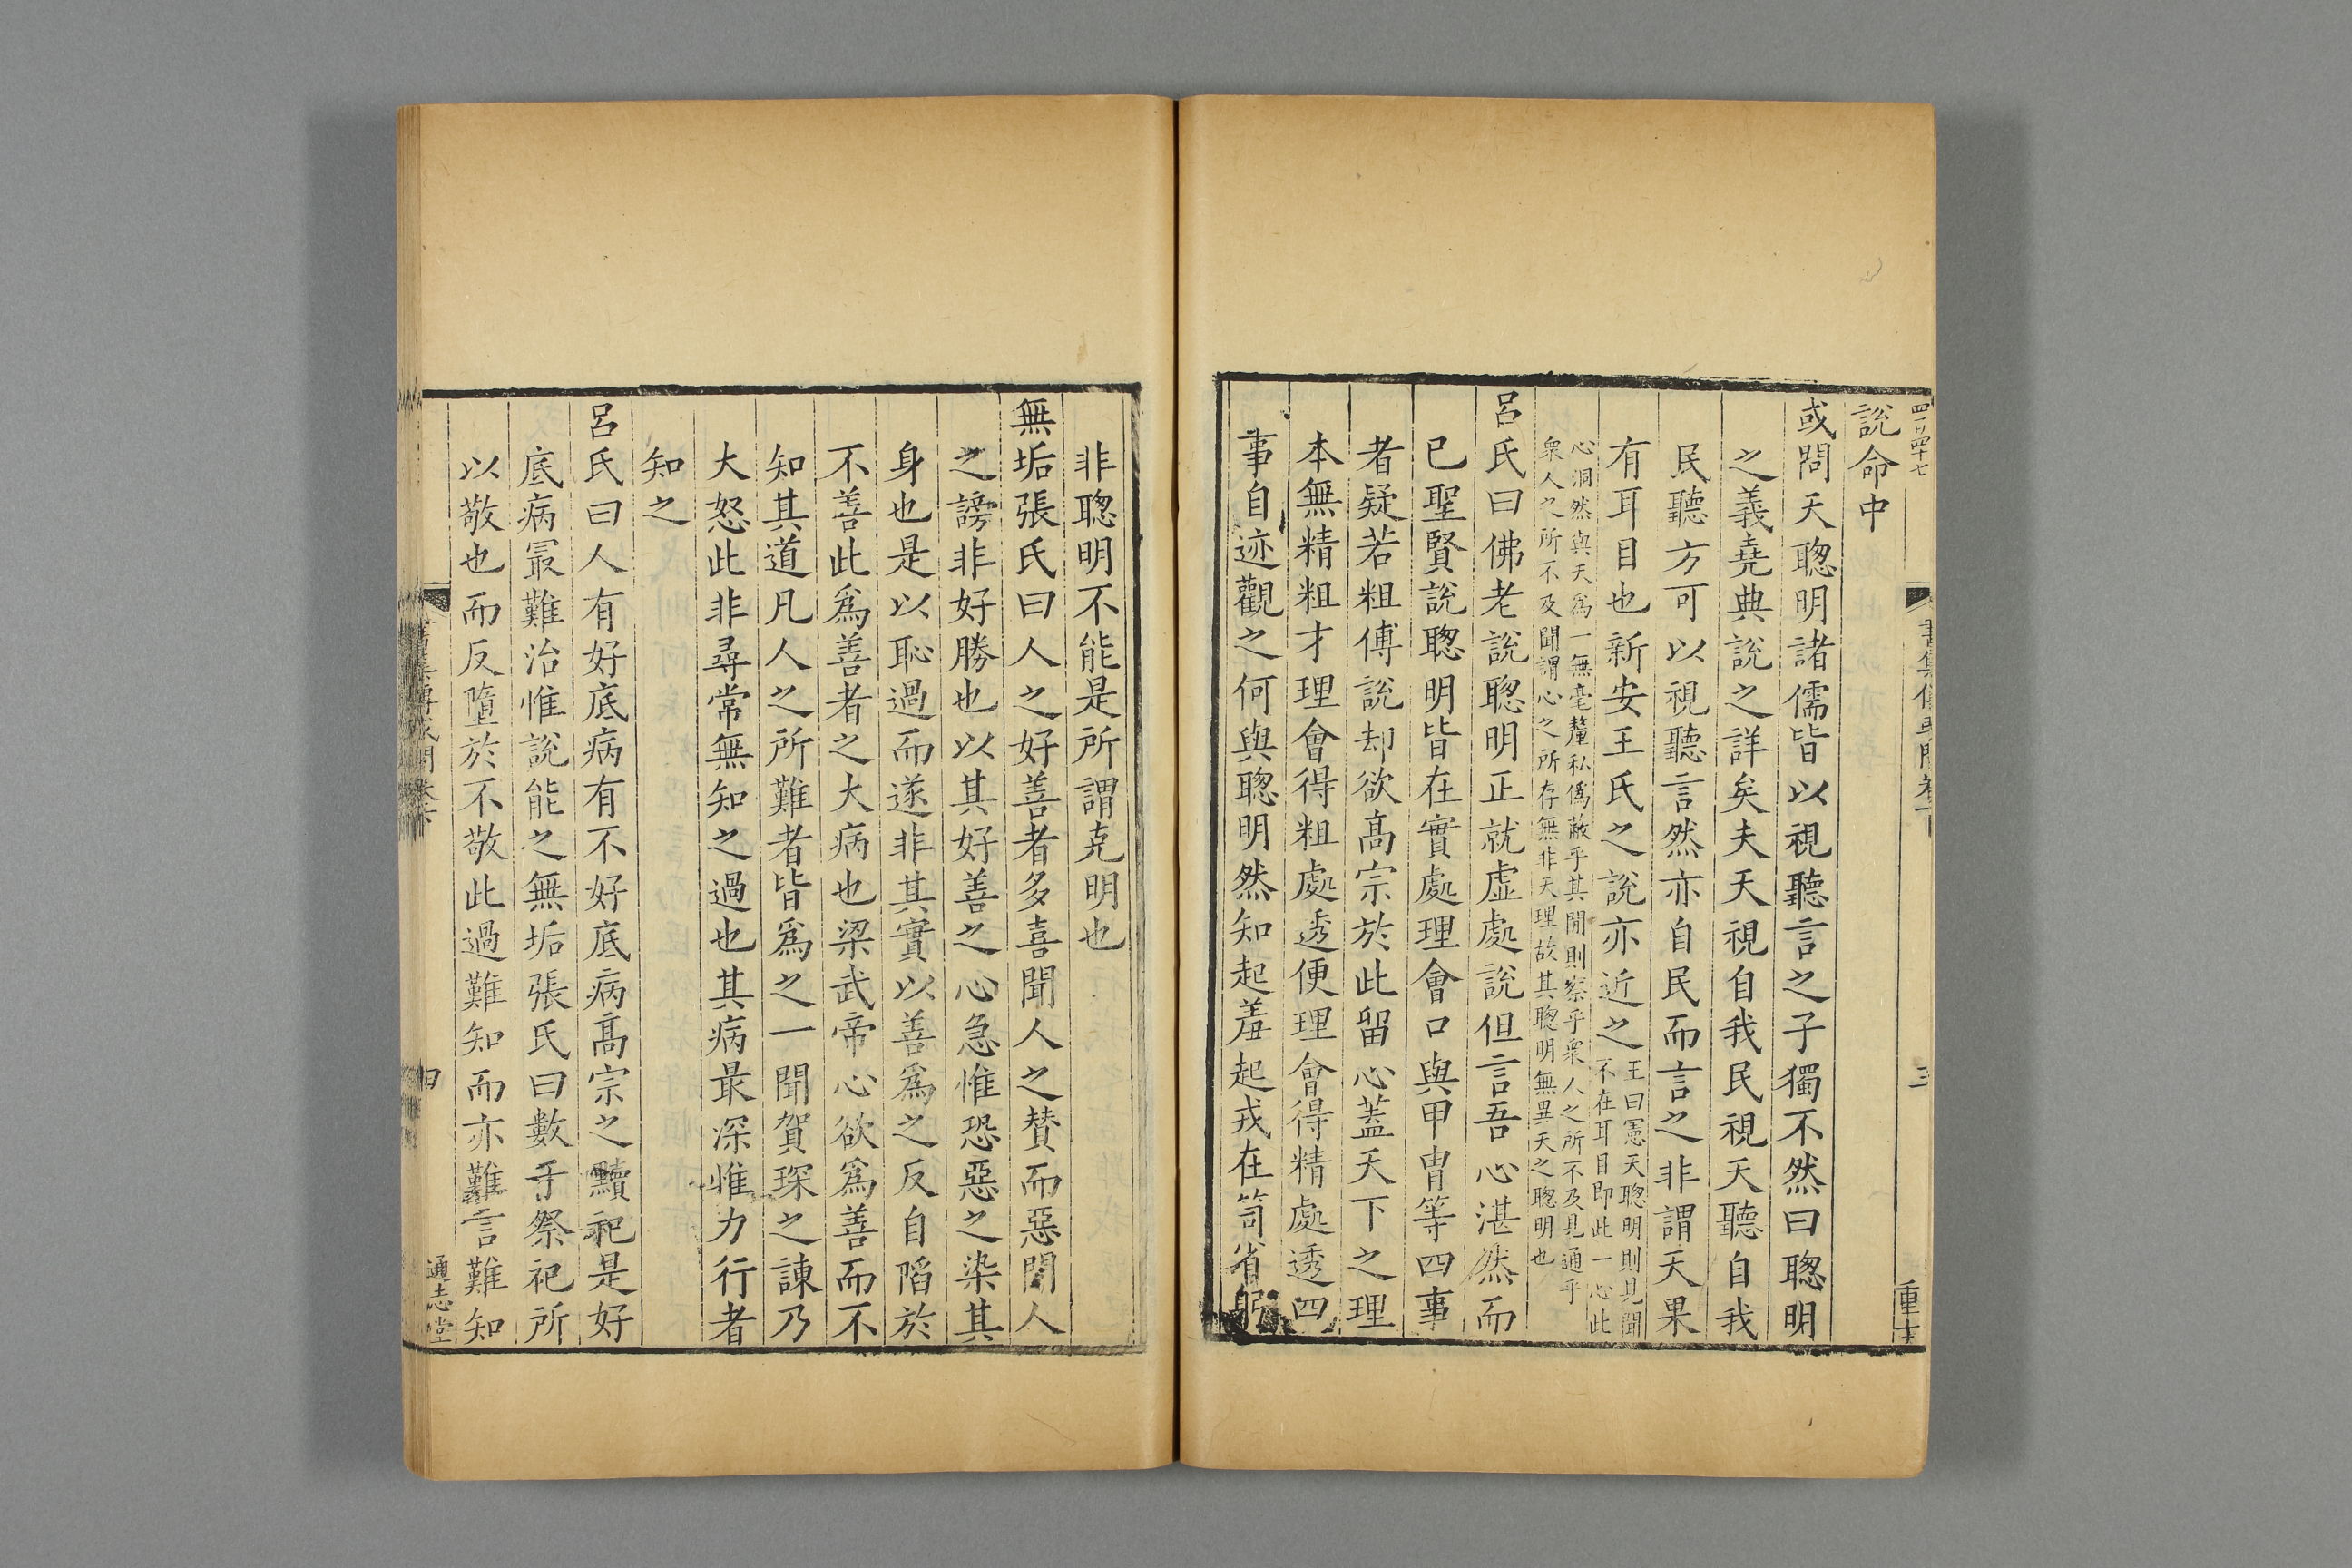 說命中
或問天聰明諸儒皆以視聽言之子獨不然曰聰明
之義堯典說之詳矣夫天視自我民視天聽自我
民聽方可以視聽言然亦自民而言之非謂天果
有耳目也新安王氏之說亦近之王曰憲天聰明則見聞
不在耳目即此一心此
心洞然與天爲一無毫釐私僞蔽乎其間則察乎衆人之所不及見通乎
衆人之所不及聞謂心之所存無非天理故其聰明無異天之聰明也
呂氏曰佛老說聰明正就虛處說但言吾心湛然而
已聖賢說聰明皆在實處理會口與甲冑等四事
者疑若粗傅說却欲高宗於此留心蓋天下之理
本無精粗才理會得粗處透便理會得精處透四
事自迹觀之何與聰明然知起羞起戎在笥省躬
非聰明不能是所謂克明也
無垢張氏曰人之好善者多喜聞人之贊而惡聞人
之謗非好勝也以其好善之心急惟恐惡之染其
身也是以恥過而遂非其實以善爲之反自陷於
不善此爲善者之大病也梁武帝心欲爲善而不
知其道凡人之所難者皆爲之一聞賀琛之諫乃
大怒此非尋常無知之過也其病最深惟力行者
知之
呂氏曰人有好底病有不好底病高宗之黷祀是好
底病㝡難治惟說能之無垢張氏曰數于祭祀所
以敬也而反墮於不敬此過難知而亦難言難知
通志堂